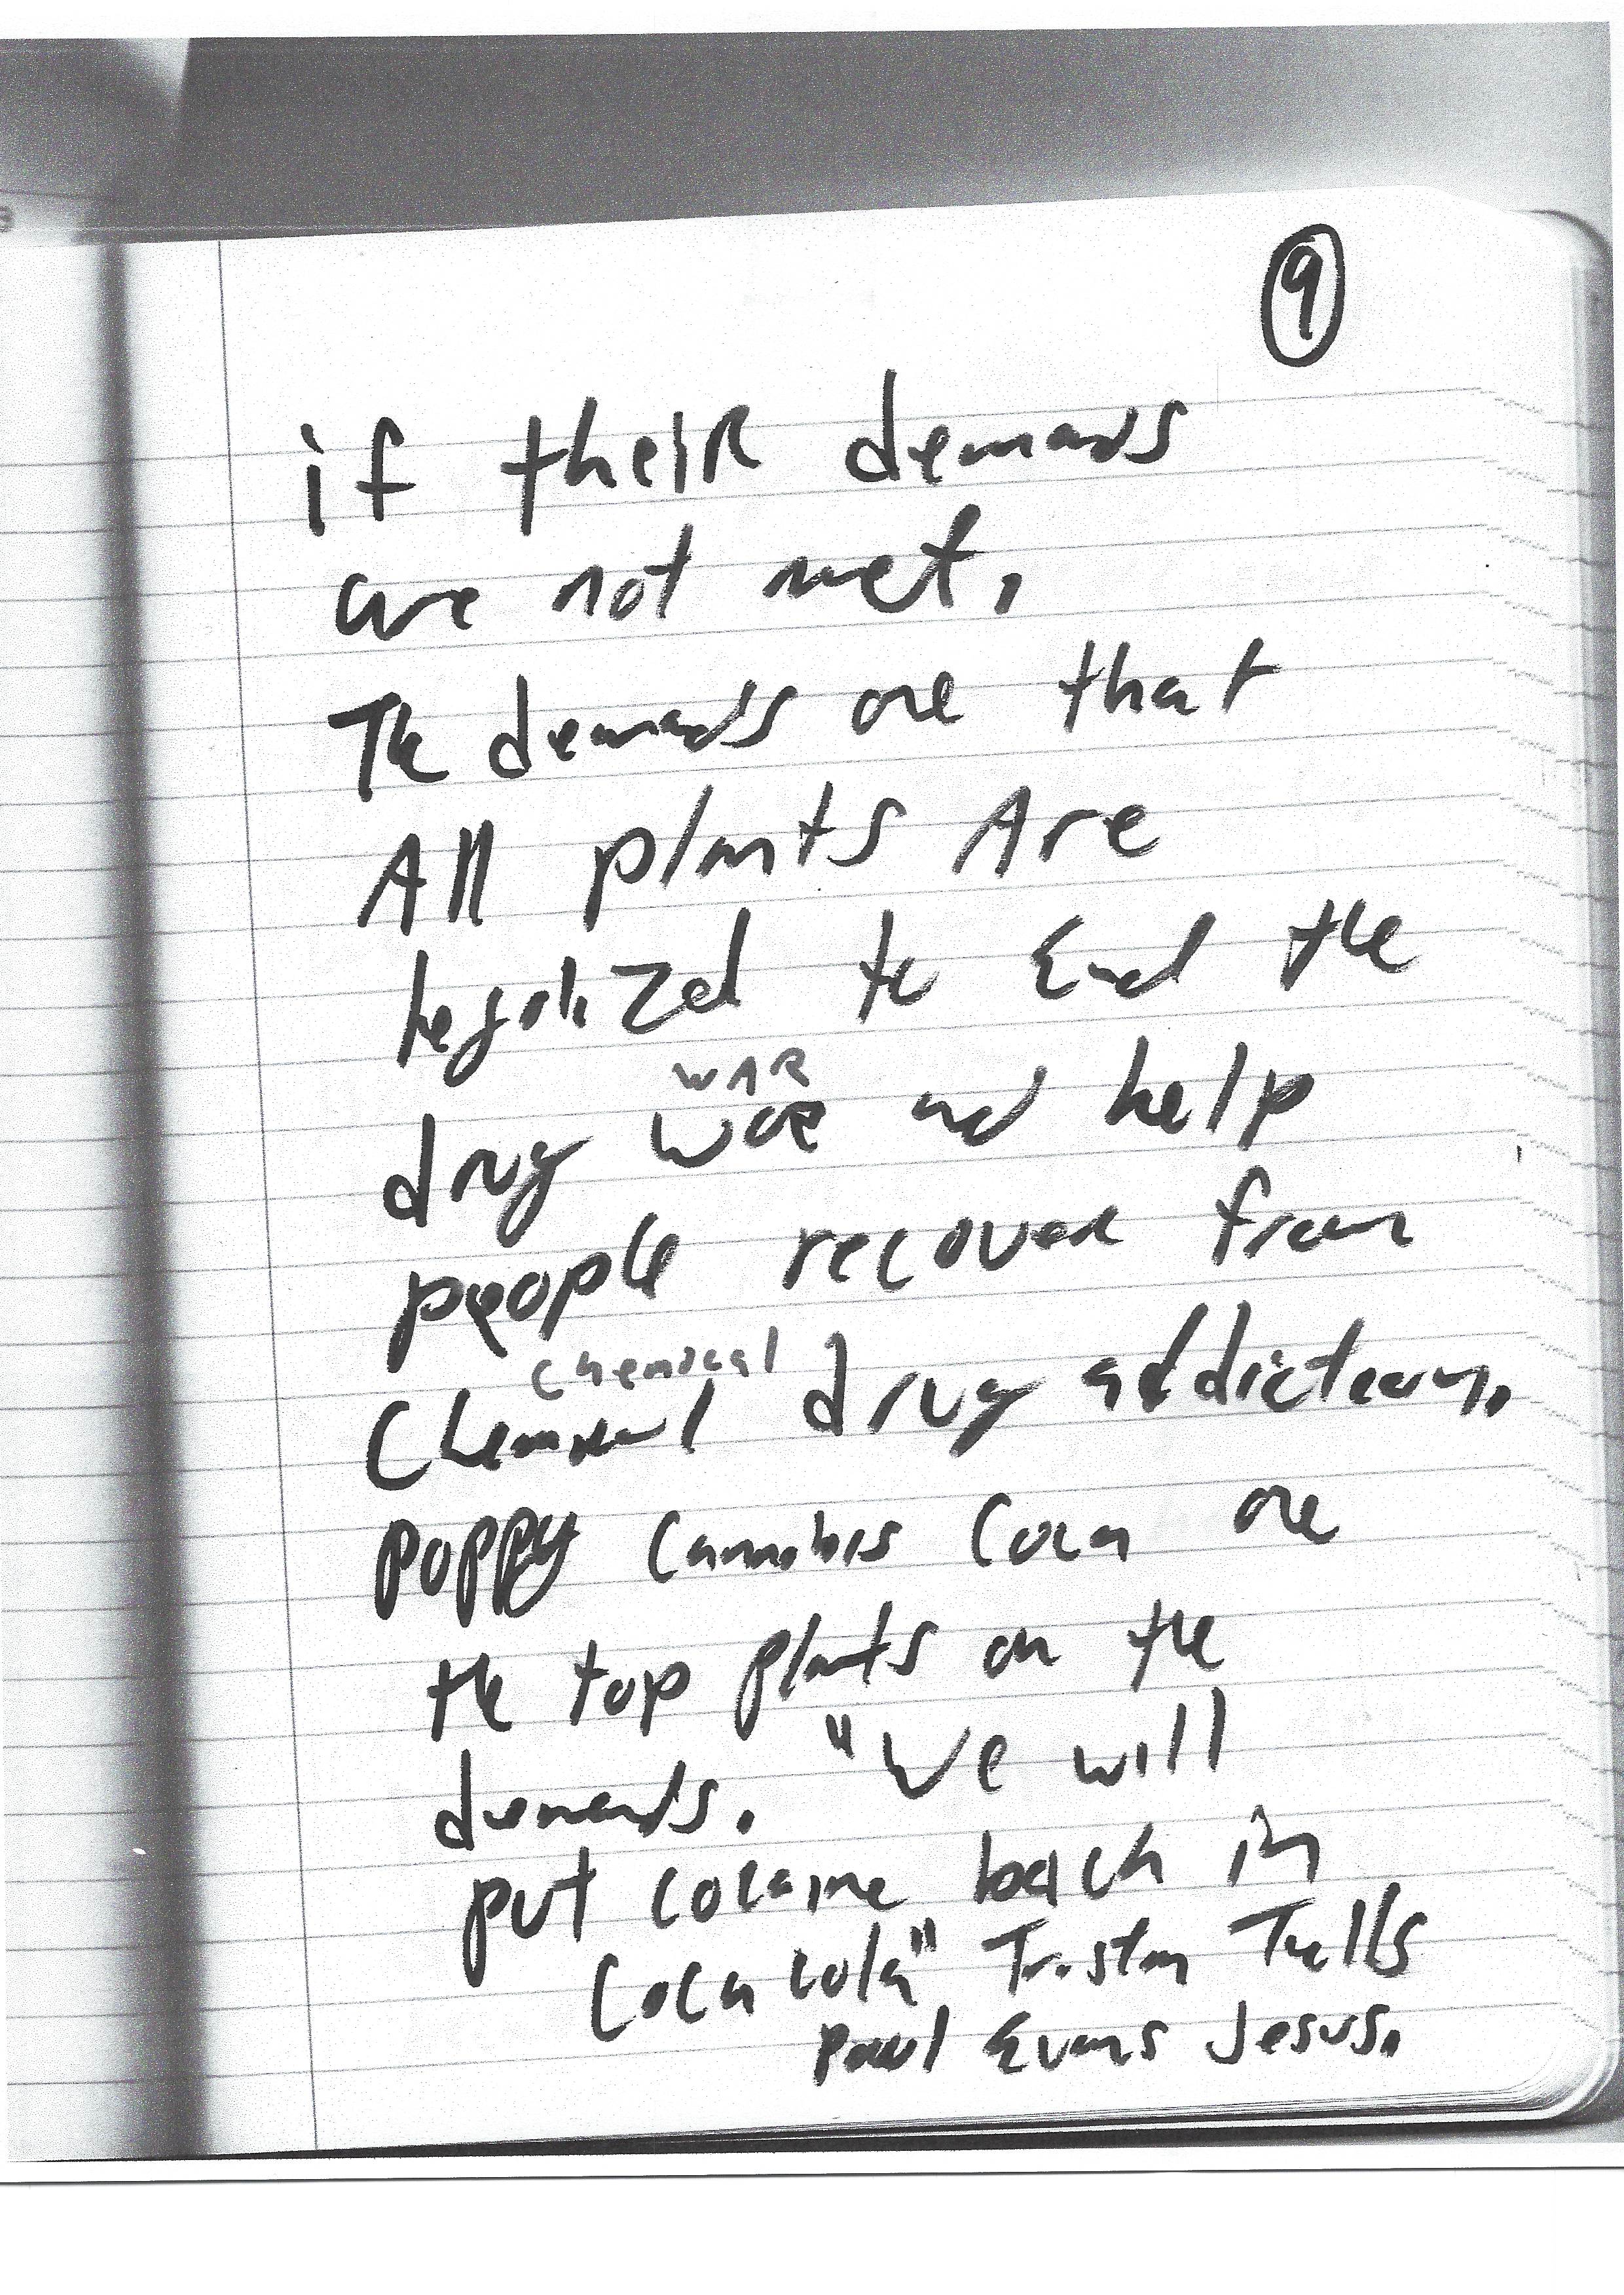 9
if their demands
are not met.
The demands are that
All plants Are
legalized to End the
WAR
drug WaR and help
people recover from
chemical
Chemical drug addiction.
poppy Cannabis Coca are
the top plants on the
demands. "We will
put cocaine back in
Coca Cola" Tristan Tells
Paul Evans Jesus.